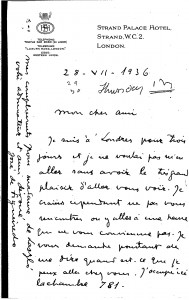 STRAND PALACE HOTEL
STRAND, W.C.2.
LONDON.
28-VII-1936
29
30
Mon cher ami
Je suis à Londres pour trois
jours et je ne voulais pas m'en
aller sans avoir le
plaisir d'aller vous voir. Je
crains cependant ne pas vous
rencontrer ou y aller à une heure
qui ne vous convienne pas. Je
vous demande pourtant de
me dire quand est-ce que je
peux aller chez vous. J'occupe ici
la chambre 781.
mes compliments pour madame de
votre admirateur et ami dévoué
José de Figueiredo